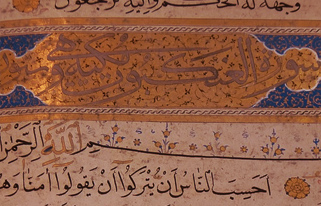 وجهه له الحكم واليه ترجعون
سورة العنكبوت مكية
بسم الله الرحمن
احسب الناس ان يتركوا ان يقولوا امنا وهم